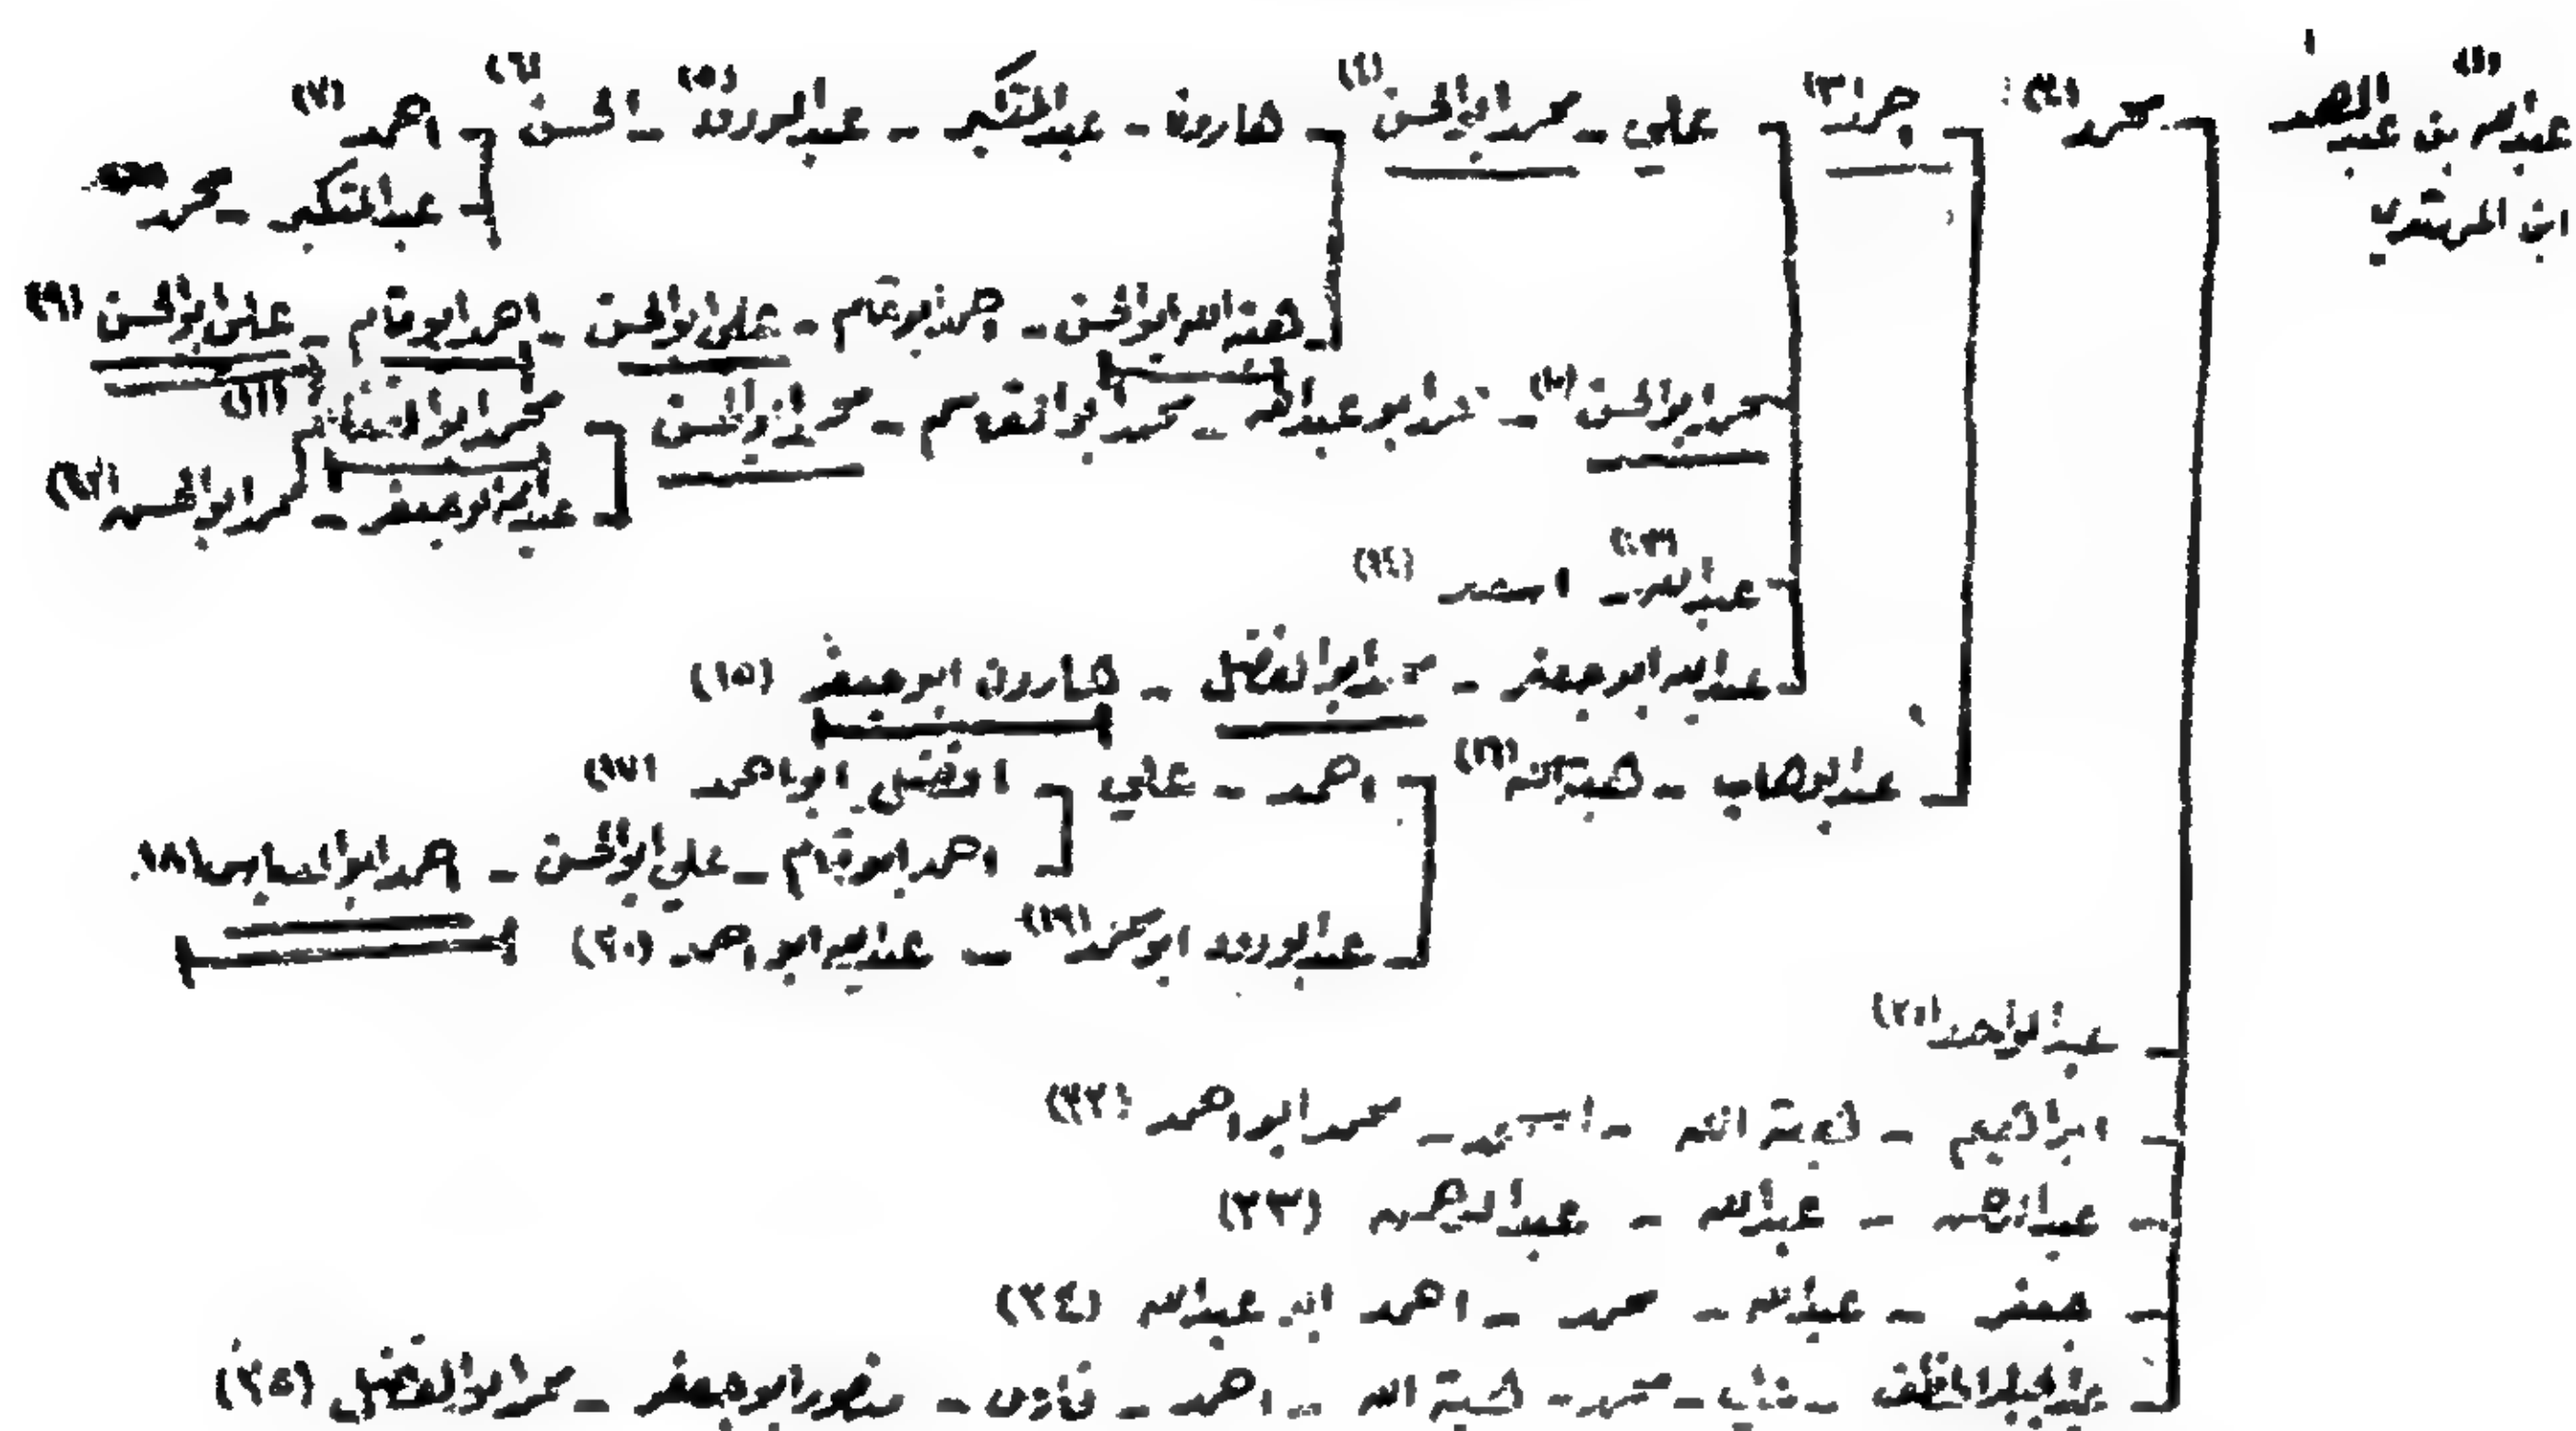 عبدالله بن عبد الصمد (١) محمد (٢) (٣) علي - محمد ابو الحسن (٤) هارون - عبد المتكبر - عبد الودود (٥) - الحسن (٦) احمد (٧)
ابن المهتدي
عبد المتكبر - محمد
هبة الله ابو الحسن - ابو تمام - علي ابو الحسن - احمد ابو تمام - علي ابو الحسن (٩)
محمد ابو الحسن (١٠) - ابو عبدالله - محمد ابو الغنائم (١١)
عبدالله ابو جعفر - محمد ابو الحسن (١٢)
عبدالله (١٣) - احمد (١٤)
عبدالله ابو جعفر - محمد ابو الفضل - هارون ابو جعفر (١٥)
عبد الوهاب - هبة الله (١٦) احمد - علي الفضل ابو احمد (١٧)
احمد ابو تمام - علي ابو الحسن - احمد ابو العباس (١٨)
عبد الودود ابو محمد (١٩) - عبدالله ابو احمد (٢٠)
عبد الواحد (٢١)
ابراهيم - هبة الله - احمد - محمد ابو احمد (٢٢)
عبدالله - عبد الرحمن (٢٣)
جعفر - عبدالله - محمد - احمد ابو عبدالله (٢٤)
محمد - هبة الله - احمد - منصور ابو جعفر - محمد ابو الفضل (٢٥)